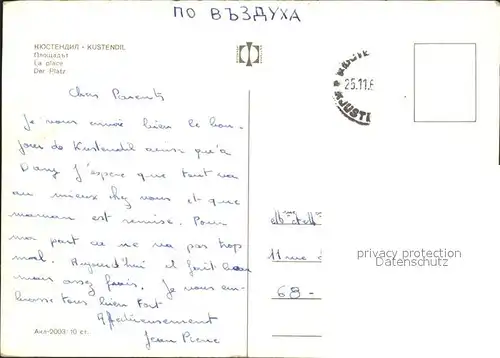 ПО ВЪЗДУХА
КЮСТЕНДИЛ · KUSTENDIL
Площадът
La place
Der Platz
25.11.6
KJUSTI
Chers Parents
Je vous envoie bien le bon-
jour de Kustendil ainsi qu'à
Dany J'espère que tout va
au mieux chez vous et que
maman est remise. Pour
ma part ça ne va pas trop
mal. Aujourd'hui il fait beau
mais assez frais. Je vous em-
brasse tous bien fort
Affectueusement
Jean Pierre
11 rue
68 -
privacy protection
Datenschutz
Акл-2003 10 ст.